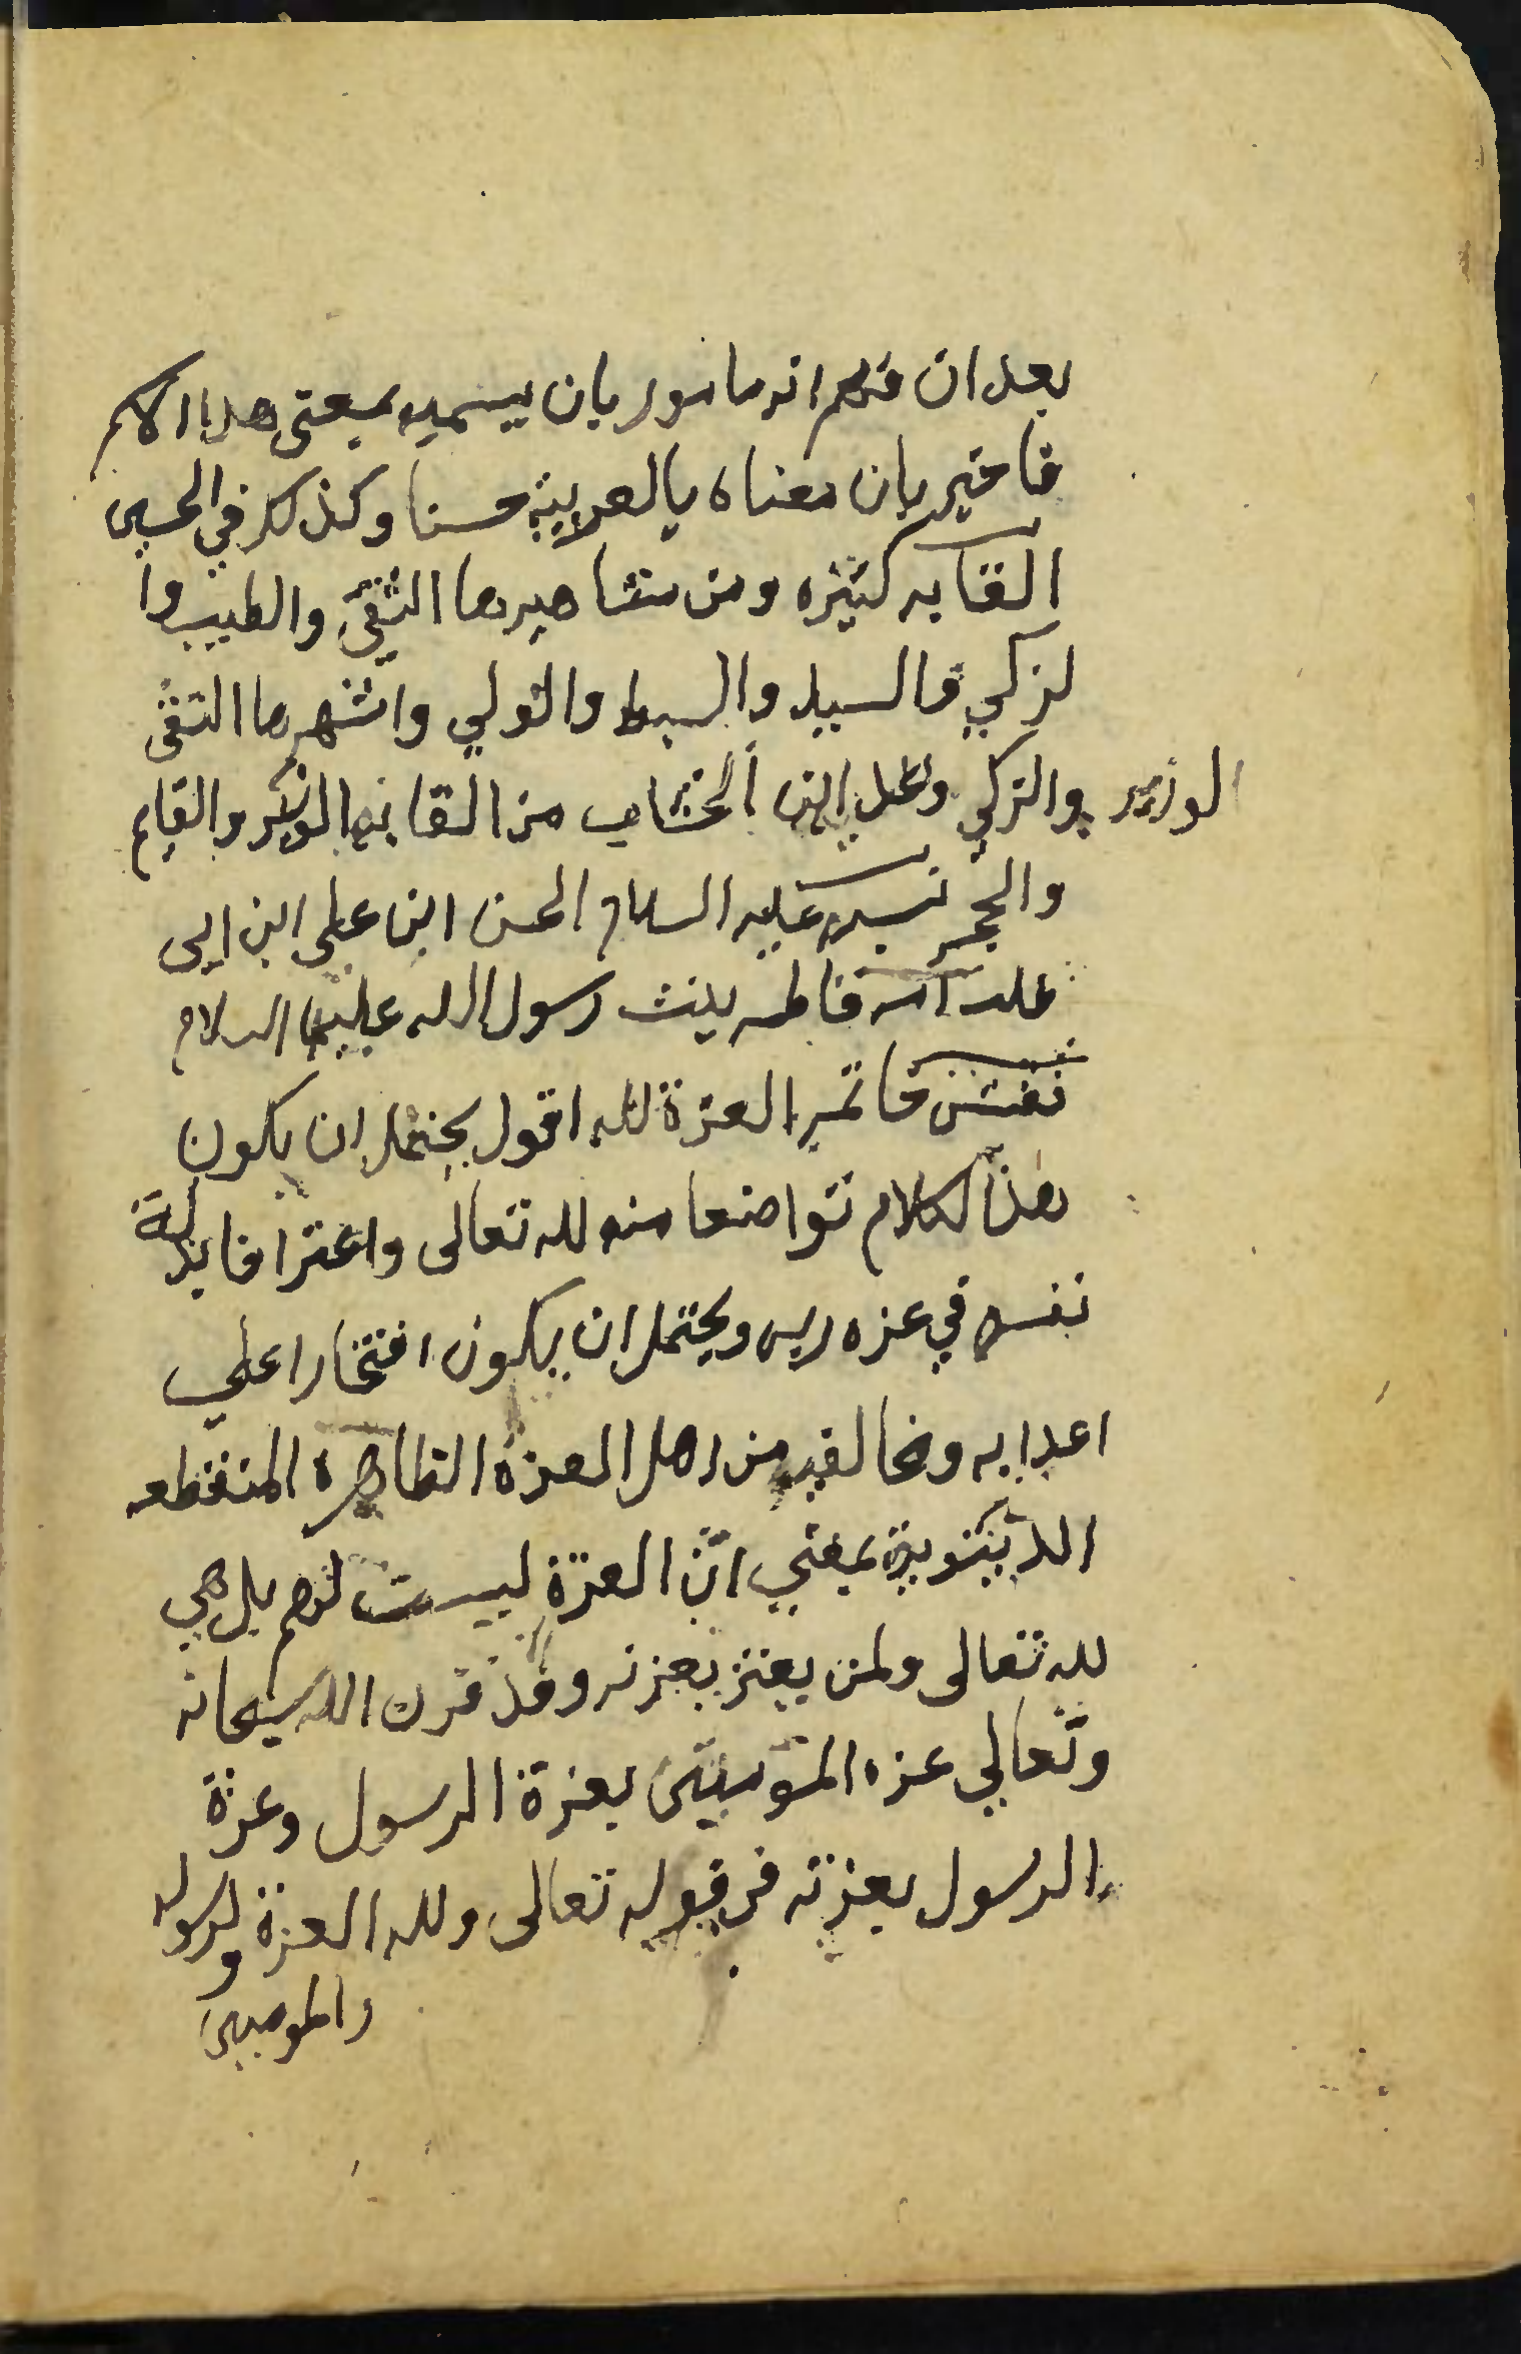 بعد ان فهم انه مامور بان يسميه بمعنى هدا الاسم
فاخبر بان معناه بالعربية حسنا وكذلك في الحسين
القابه كثيره ومن مشاهيرها التقي والطيب وا
لزكي والسيد والسبط والولي واشهرها التقى
والزكي ونقل ابن الخشاب من القابه الوزير والقايم
الوزير
والحجر نسبه عليه السلام الحسن ابن علي ابن ابى
طلب امه فاطمه بنت رسول الله عليهما السلام
نقش خاتمه العزة لله اقول يحتمل ان يكون
هذا الكلام تواضعا منه لله تعالى واعترافا بذلة
نفسه في عزه ربه ويحتمل ان يكون افتخارا علي
اعدايه ومخالفيه من اهل العزة الظاهرة المنقطعه
الدينوية بمعني انّ العزة ليست لهم بل هي
لله تعالى ولمن يعتز بعزته وقد قرن الله سبحانه
وتعالي عزه المؤمنين بعزة الرسول وعزة
الرسول بعزته في قوله تعالى ولله العزة ولرسوله
والمومنين